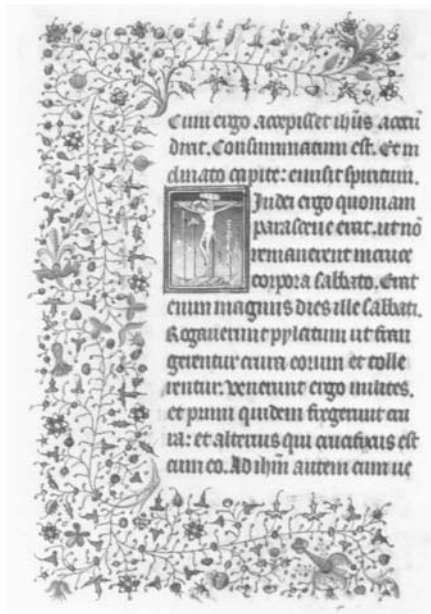 Cum ergo accepisset ihūs acetū
dixit. Consummatum est. Et in
clinato capite: emisit spiritum.
Iudei ergo quoniam
parasceue erat. ut nō
remanerent in cruce
corpora sabbato. Erat
enim magnus dies ille sabbati.
Rogauerunt pylatum ut fran
gerentur crura eorum et tolle
rentur. venerunt ergo milites.
et primi quidem fregerunt cru
ra: et alterius qui crucifixus est
cum eo. Ad ihm̄ autem cum ue